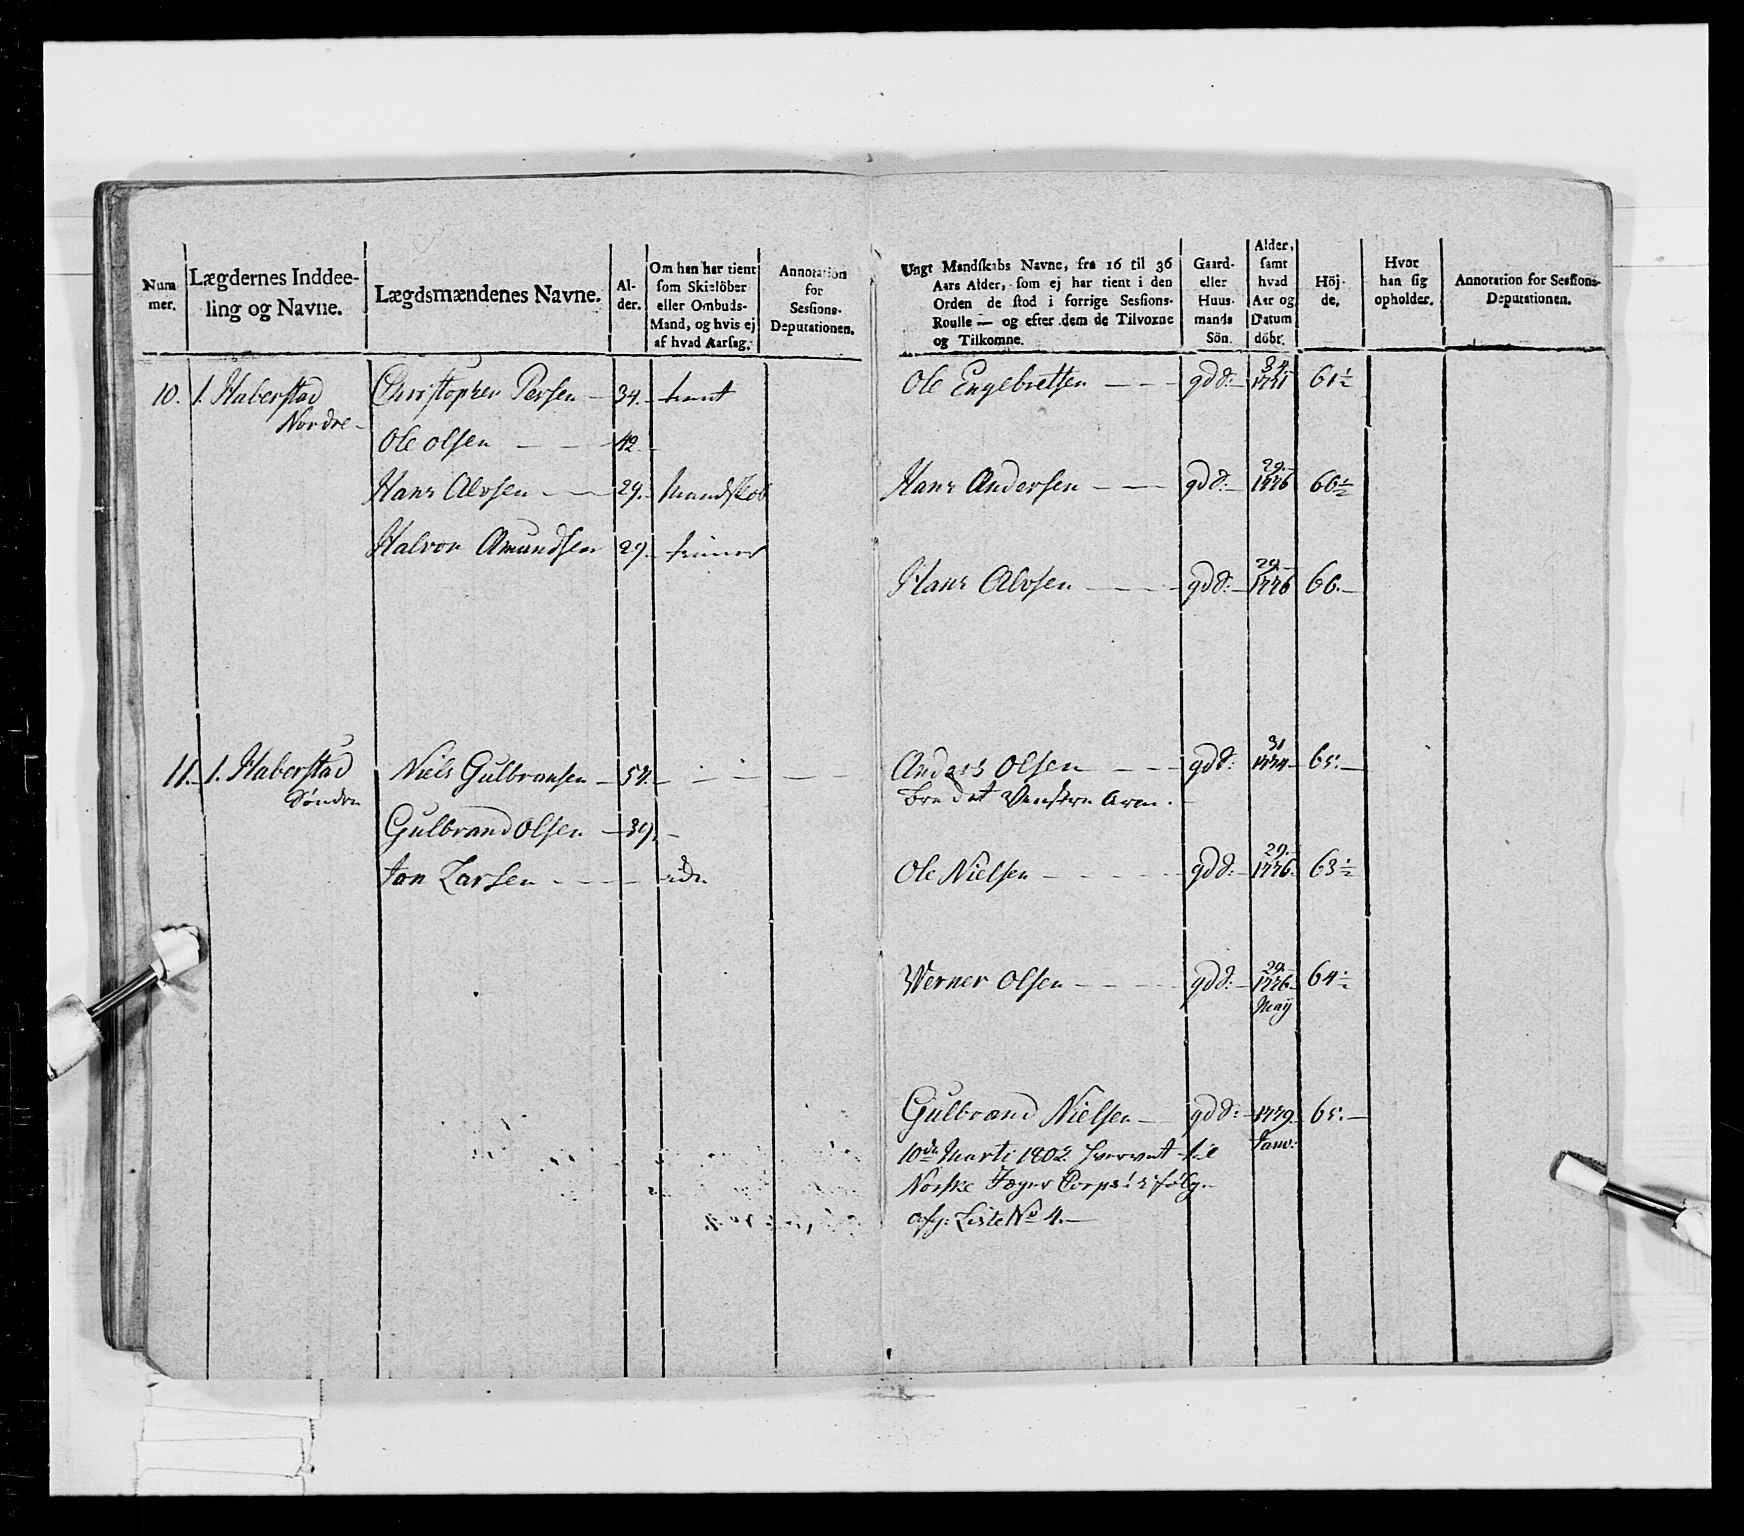 Num-
mer.
Lægdernes Inddee-
ling og Navne.
Lægdsmændenes Navne.
Al-
der.
Om han har tient
som Skieløber
eller Ombuds-
Mand, og hvis ej
af hvad Aarsag.
Annotation
for
Sessions-
Deputationen.
10. 1. Haberstad
Nordre
Christopher Persen — 34. tient
Ole Olsen — — 42.
Hans Alvsen — — 29. Mandskab
Halvor Amundsen 29.
11. 1. Haberstad
Søndre
Niels Gulbransen — 57.
Gulbrand Olsen — 39.
Jon Larsen — — —
Ungt Mandskabs Navne, fra 16 til 36
Aars Alder, som ej har tient i den
Orden de stod i forrige Sessions-
Roulle — og efter dem de Tilvoxne
og Tilkomne.
Gaard-
eller
Huus-
mands
Sön.
Alder,
samt
hvad
Aar og
Datum
döbt.
Höj-
de.
Hvor
han sig
opholder.
Annotation for Sessions-
Deputationen.
34.
Ole Engebretsen — — gdd: 1771 61½
29.
Hans Andersen — — gdd: 1776 66½
29.
Hans Alvsen — — gdd: 1776 66.
31
Anders Olsen — — gdd: 1774 65.
Brædet Venstre Arm.
29.
Ole Nielsen — — gdd: 1776. 63½
29.
Werner Olsen — — gdd: 1776 64½
May
Gulbrand Nielsen — gdd: 1779. 65.
Janv:
10de Marti 1802. hvervet til
Norske Jæger Corps: i følge
afg: Liste No 4.